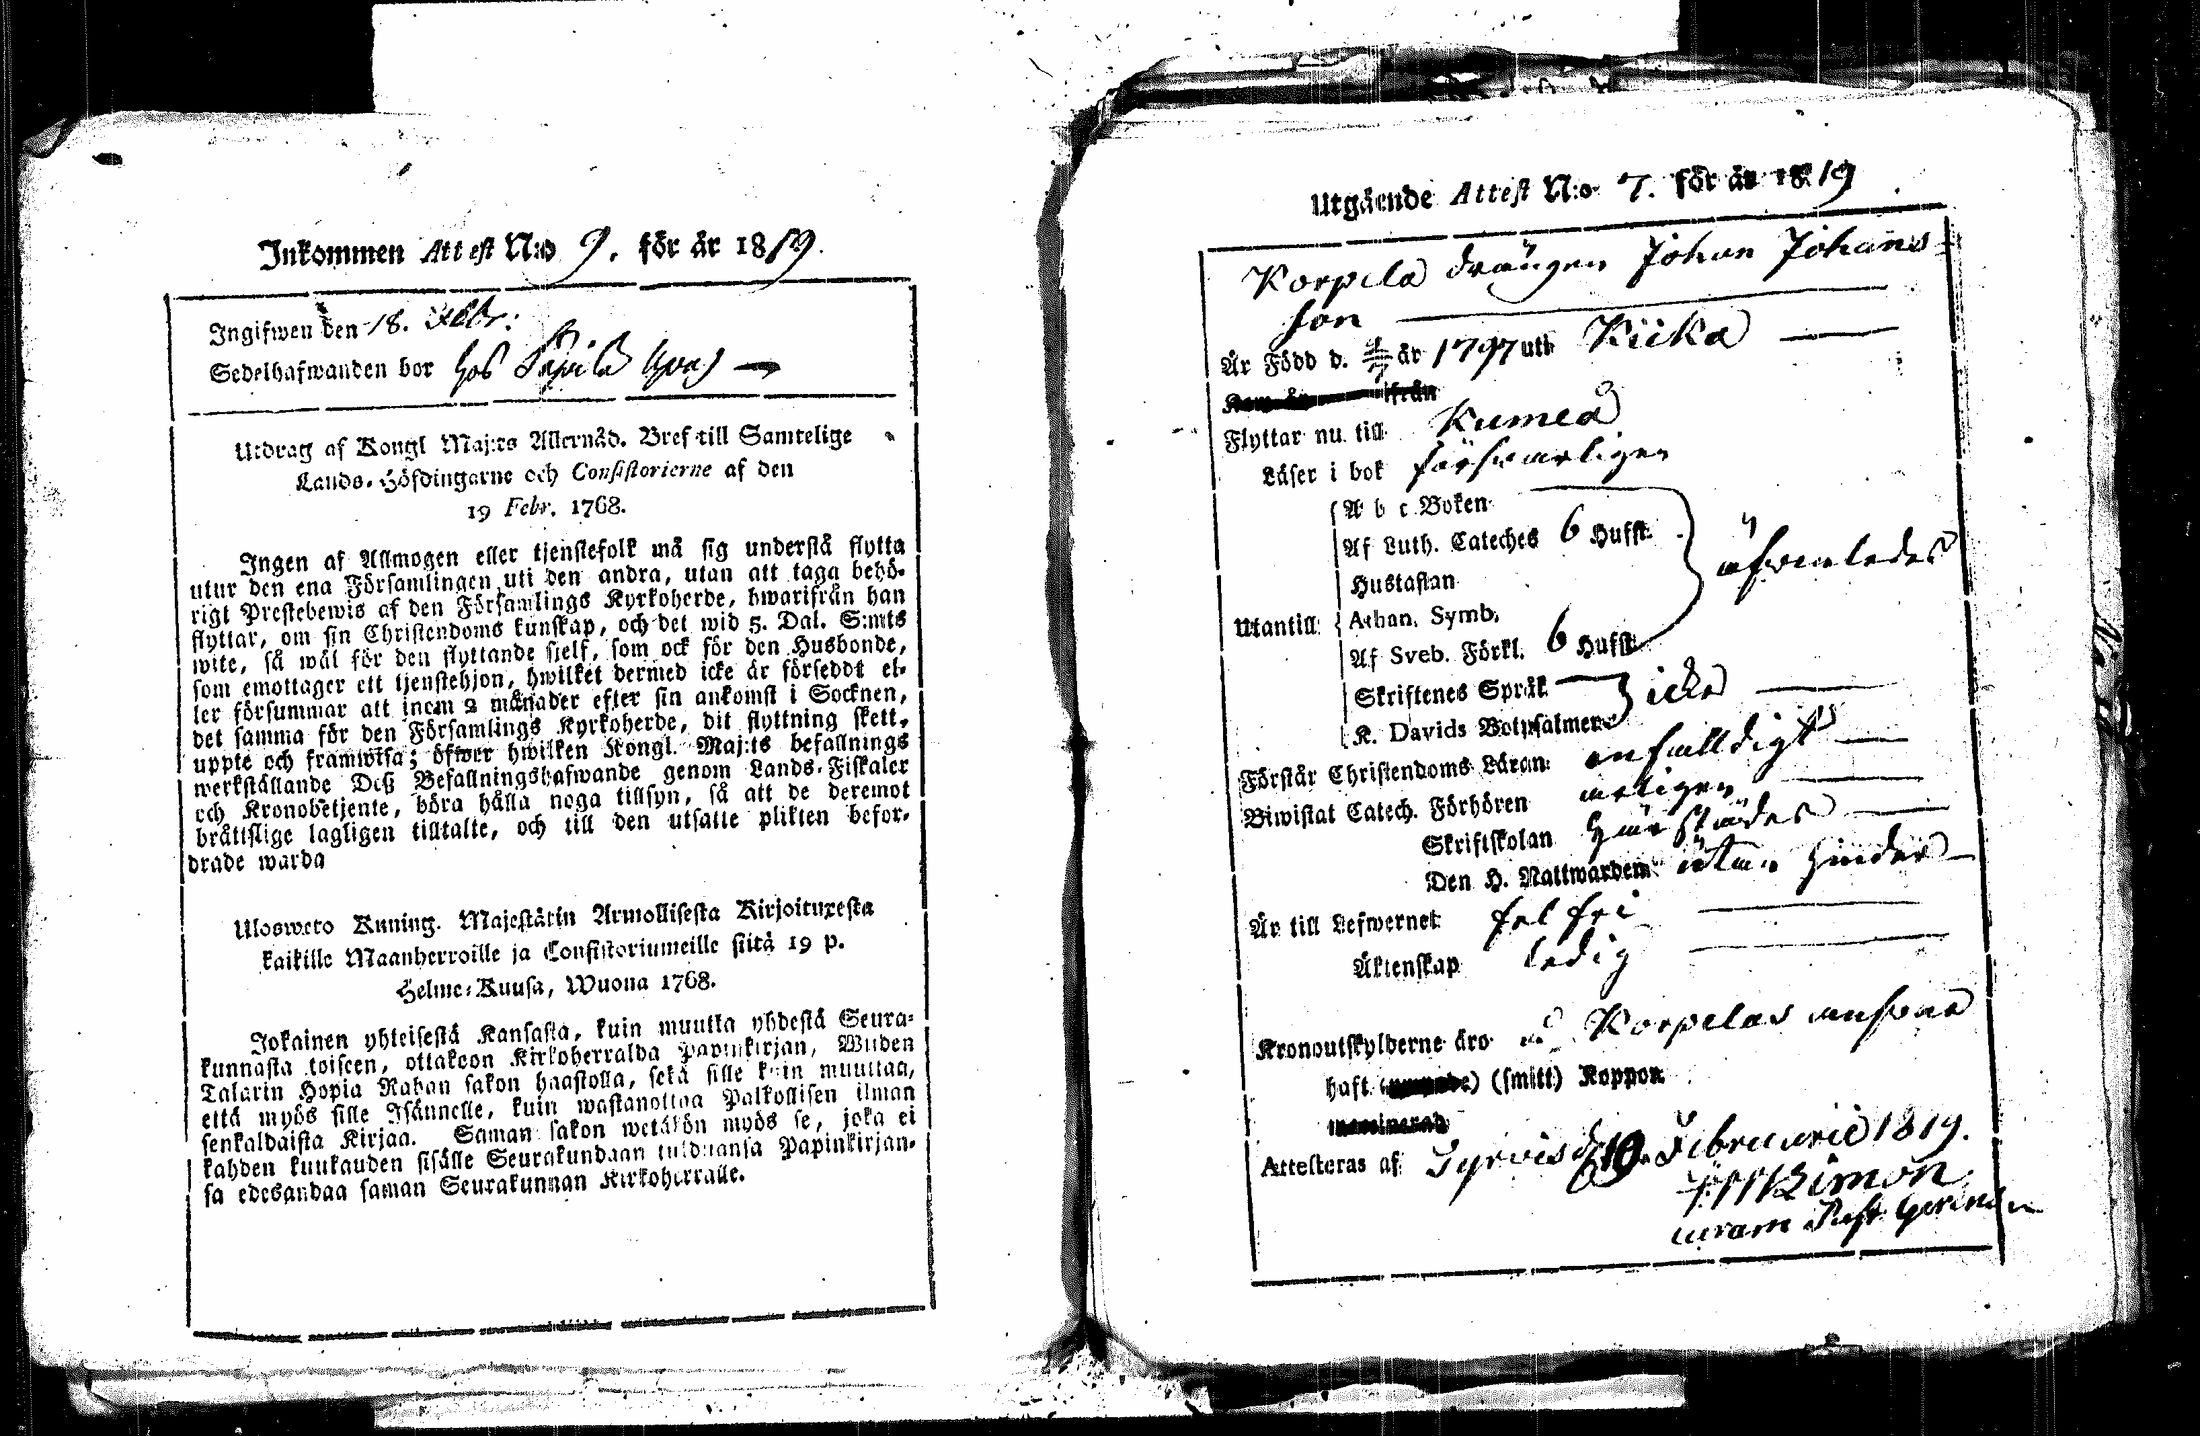 Inkommen Attest N:o 9. för år 1819.
Ingifwen den 18. Febr:
Sedelhafwanden bor hos
Utdrag af Kongl Maj:ts Allernåd. Bref till Samtelige
Lands-Höfdingarne och Consistorierne af den
19 Febr. 1768.
Ingen af Allmogen eller tjenstefolk må sig understå flytta
utur den ena Församlingen uti den andra, utan att taga behö-
rigt Prestebewis af den Församlings Kyrkoherde, hwarifrån han
flyttar, om sin Christendoms kunskap, och det wid 5. Dal. S:mts
wite, så wäl för den flyttande sjelf, som ock för den Husbonde,
som emottager ett tjenstehjon, hwilket dermed icke är förseddt el-
ler försummar att inom 2 månader efter sin ankomst i Socknen,
det samma för den Församlings Kyrkoherde, dit flyttning skett,
uppte och framwisa; öfwer hwilken Kongl. Maj:ts befallnings
werkställande Deß Befallningshafwande genom Lands-Fiskaler
och Kronobetjente, böra hålla noga tillsyn, så att de deremot
bråttslige lagligen tilltalte, och till den utsatte plikten befor-
drade warda
Ulosweto Kuning. Majestätin Armollisesta Kirjoituxesta
kaikille Maanherroille ja Consistoriumeille siitä 19 p.
Helme-Kuusa, Wuona 1768.
Jokainen yhteisestä Kansasta, kuin muutta yhdestä Seura-
kunnasta toiseen, ottakoon Kirkoherralda Papinkirjan, Wuden
Talarin Hopia Rahan sakon haastolla, sekä sille kuin muuttaa,
että myös sille Isännelle, kuin wastanottaa Palkollisen ilman
senkaldaista Kirjaa. Saman sakon wetäkön myös se, joka ei
kahden kuukauden sisälle Seurakundaan tulduansa Papinkirjan-
sa edesandaa saman Seurakunnan Kirkoherralle.
Utgående Attest N:o 7. för år 1819
Korpela drängen Johan Johans-
son
Är Född d. år 1797 uti Kiika
ifrån
Flyttar nu till Kumeå
Läser i bok försvarligen
A b c Boken
Af Luth. Cateches 6 Hufst.
Hustaflan
äfwenledes
Utantill
Athan. Symb.
Af Sveb. Förkl. 6 Hufst.
Skriftenes Språk
icke
K. Davids Botpsalmer
Förstår Christendoms Läran enfalldigt
Biwistat Catech. Förhören årligen
Skriftskolan härstädes
Den H. Nattwarden utan hinder
Är till Lefwernet fel fri
Äktenskap ledig
Kronoutskylderne äro å Korpelas ansvar
haft (smitt) Koppor
Attesteras af Tyrvis d. 10 Februarii 1819.
Simon
curam Past. gerens